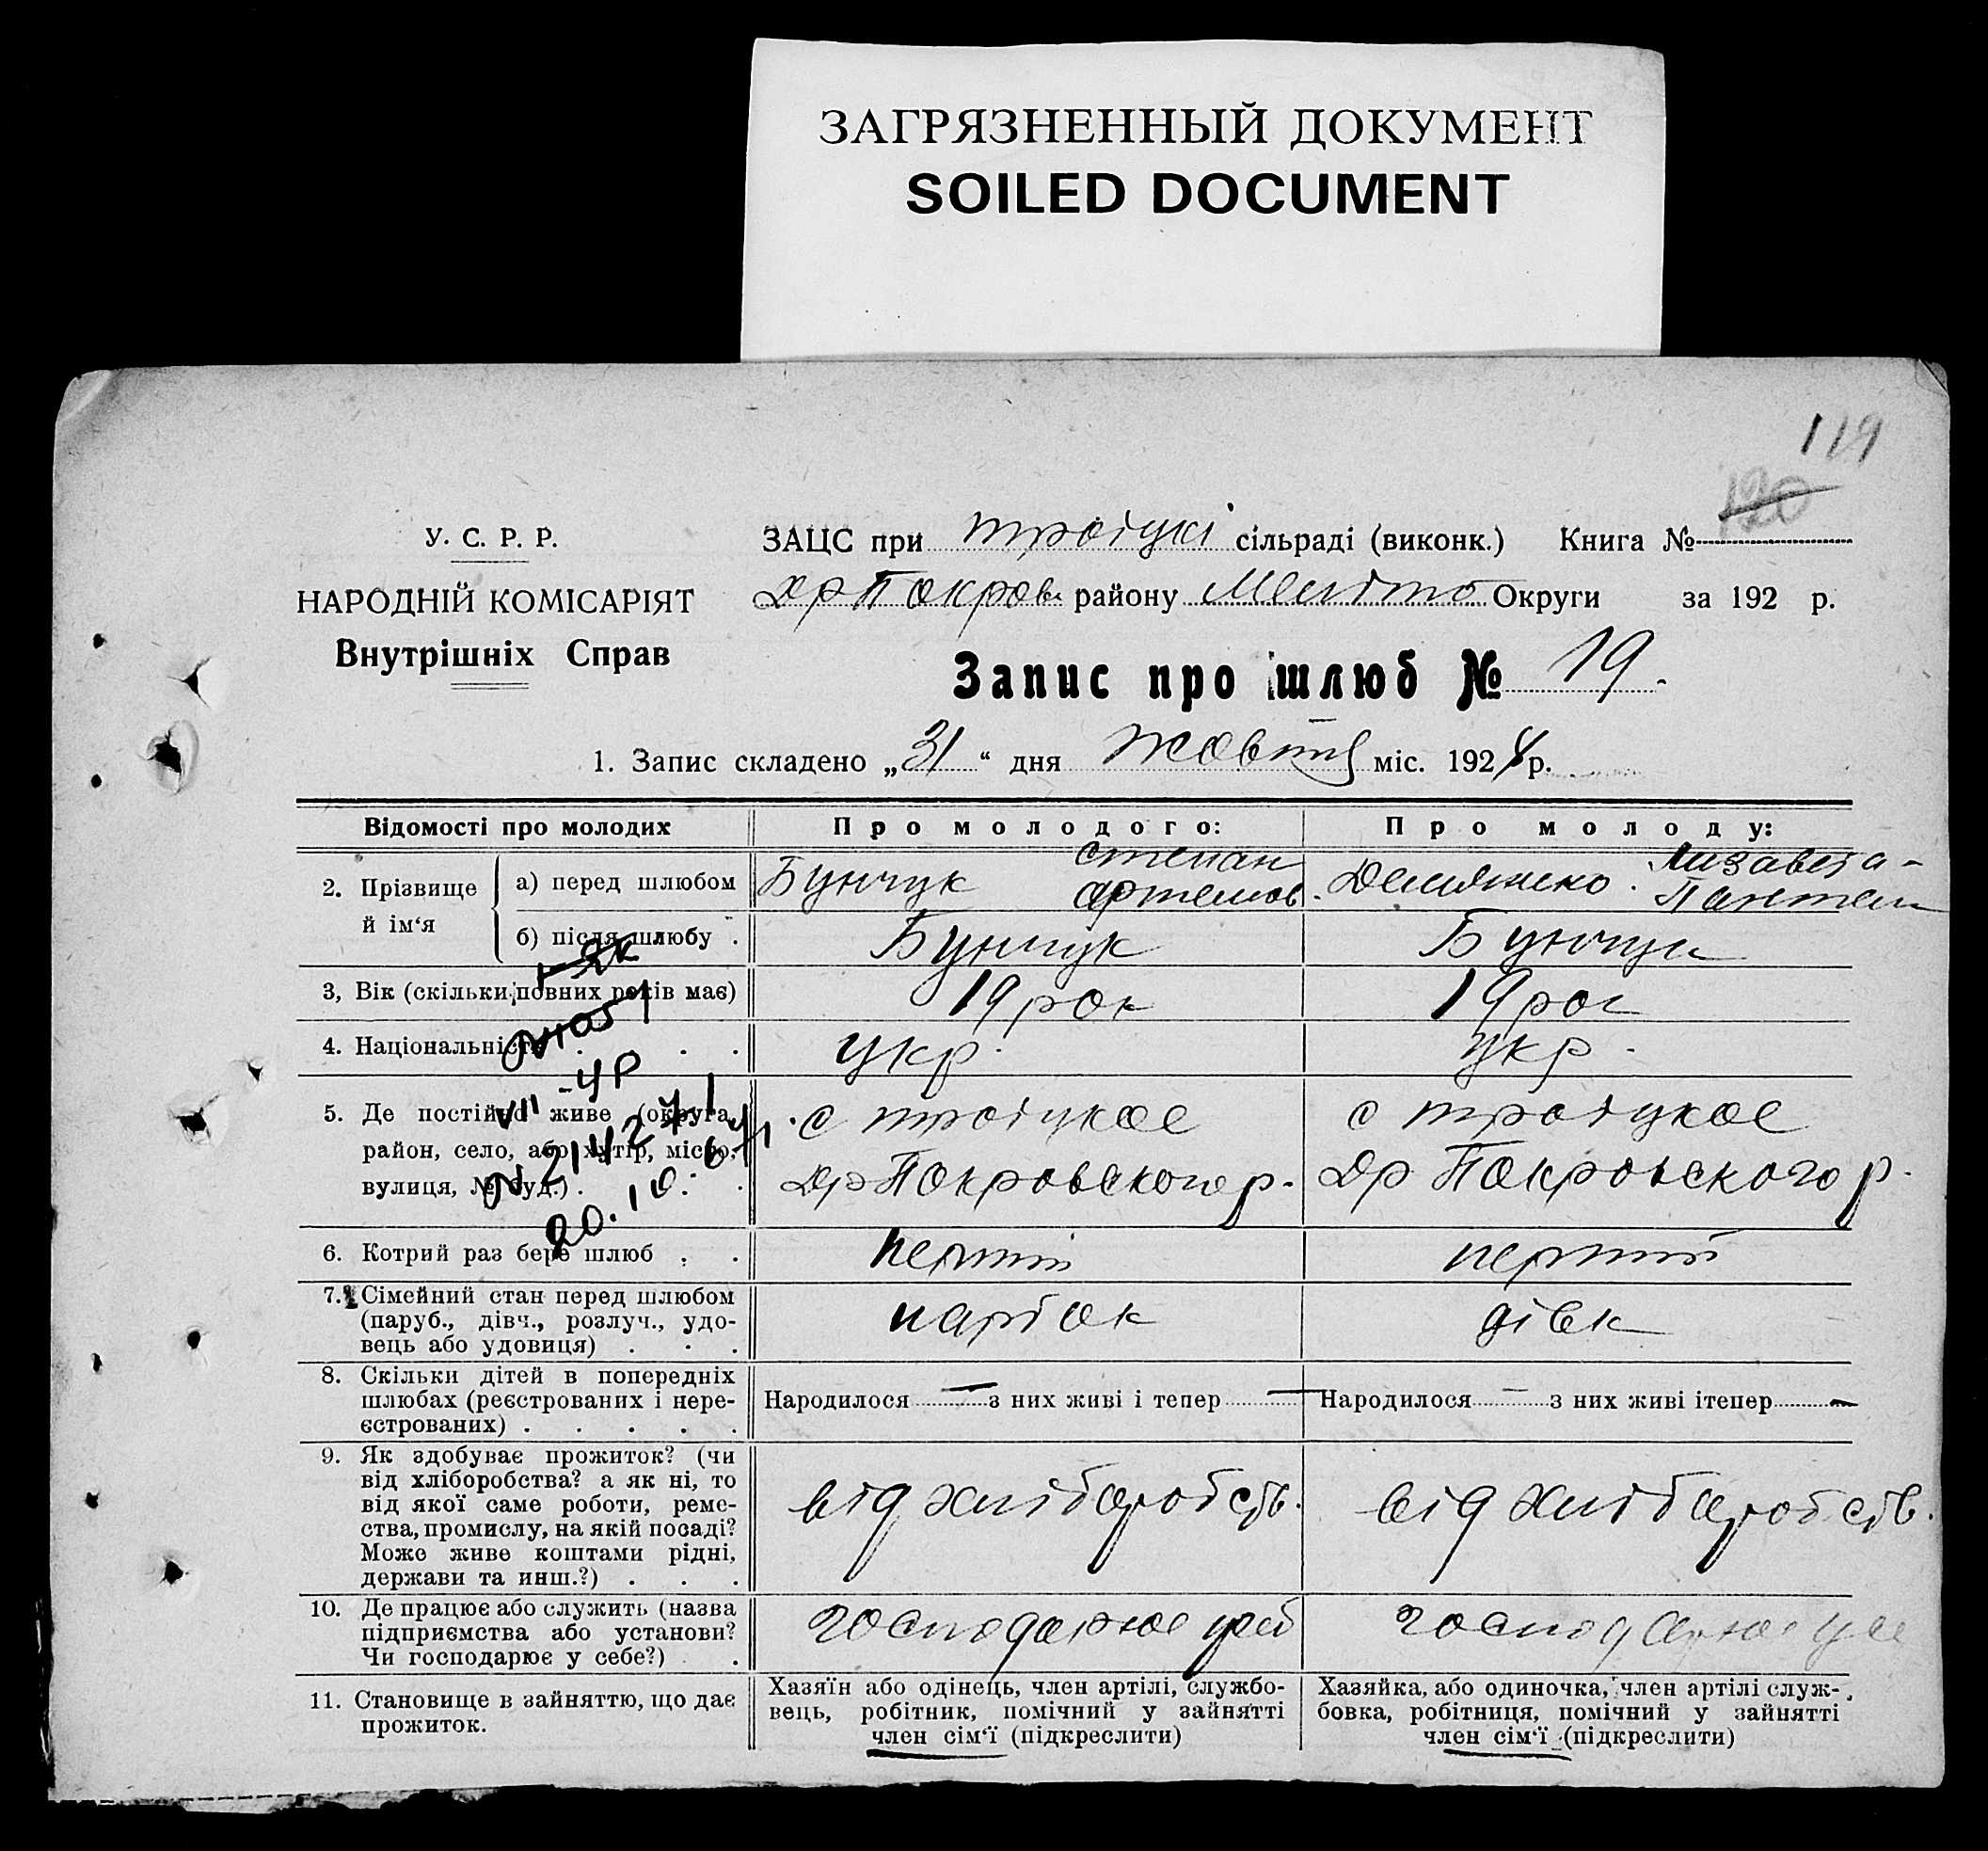 ЗАГРЯЗНЕННЫЙ ДОКУМЕНТ
SOILED DOCUMENT
119
120
У. С. Р. Р.
НАРОДНІЙ КОМІСАРІЯТ
Внутрішніх Справ
ЗАЦС при троіцкі сільраді (виконк.) Книга №
др Покров. району Меліто Округи за 192 р.
Запис про шлюб № 19.
1. Запис складено „31“ дня Жовтня міс. 1924 р.
Відомості про молодих
Про молодого:
Про молоду:
2. Прізвище й ім‘я
а) перед шлюбом
Бунчук Степан
Артемов.
Демянко. Лизавета -
Пантел
б) після шлюбу .
Бунчук
Бунчук
3, Вік (скільки повних років має)
19 рок
19 рок
4. Національність . . . .
укр.
укр.
5. Де постійно живе (округа,
район, село, або хутір, місто,
вулиця, № буд.) . . .
с троіцкое
др Покровского р.
с троіцкое
др Покровского р.
VII - УР
20.10.
6. Котрий раз бере шлюб . .
перший
перший
7. Сімейний стан перед шлюбом
(паруб., дівч., розлуч., удо-
вець або удовиця) . . .
парубок
дівк
8. Скільки дітей в попередніх
шлюбах (реєстрованих і нере-
єстрованих) . . . . .
Народилося — з них живі і тепер —
Народилося — з них живі ітепер —
9. Як здобуває прожиток? (чи
від хліборобства? а як ні, то
від якої саме роботи, реме-
ства, промислу, на якій посаді?
Може живе коштами рідні,
держави та инш.?) . . .
від хліборобств.
від хліборобств.
10. Де працює або служить (назва
підприємства або установи?
Чи господарює у себе?) .
господарює у себ
господарює у се
11. Становище в зайняттю, що дає
прожиток.
Хазяїн або одінець, член артілі, службо-
вець, робітник, помічний у зайнятті
член сім‘ї (підкреслити)
Хазяйка, або одиночка, член артілі служ-
бовка, робітниця, помічний у зайнятті
член сім‘ї (підкреслити)